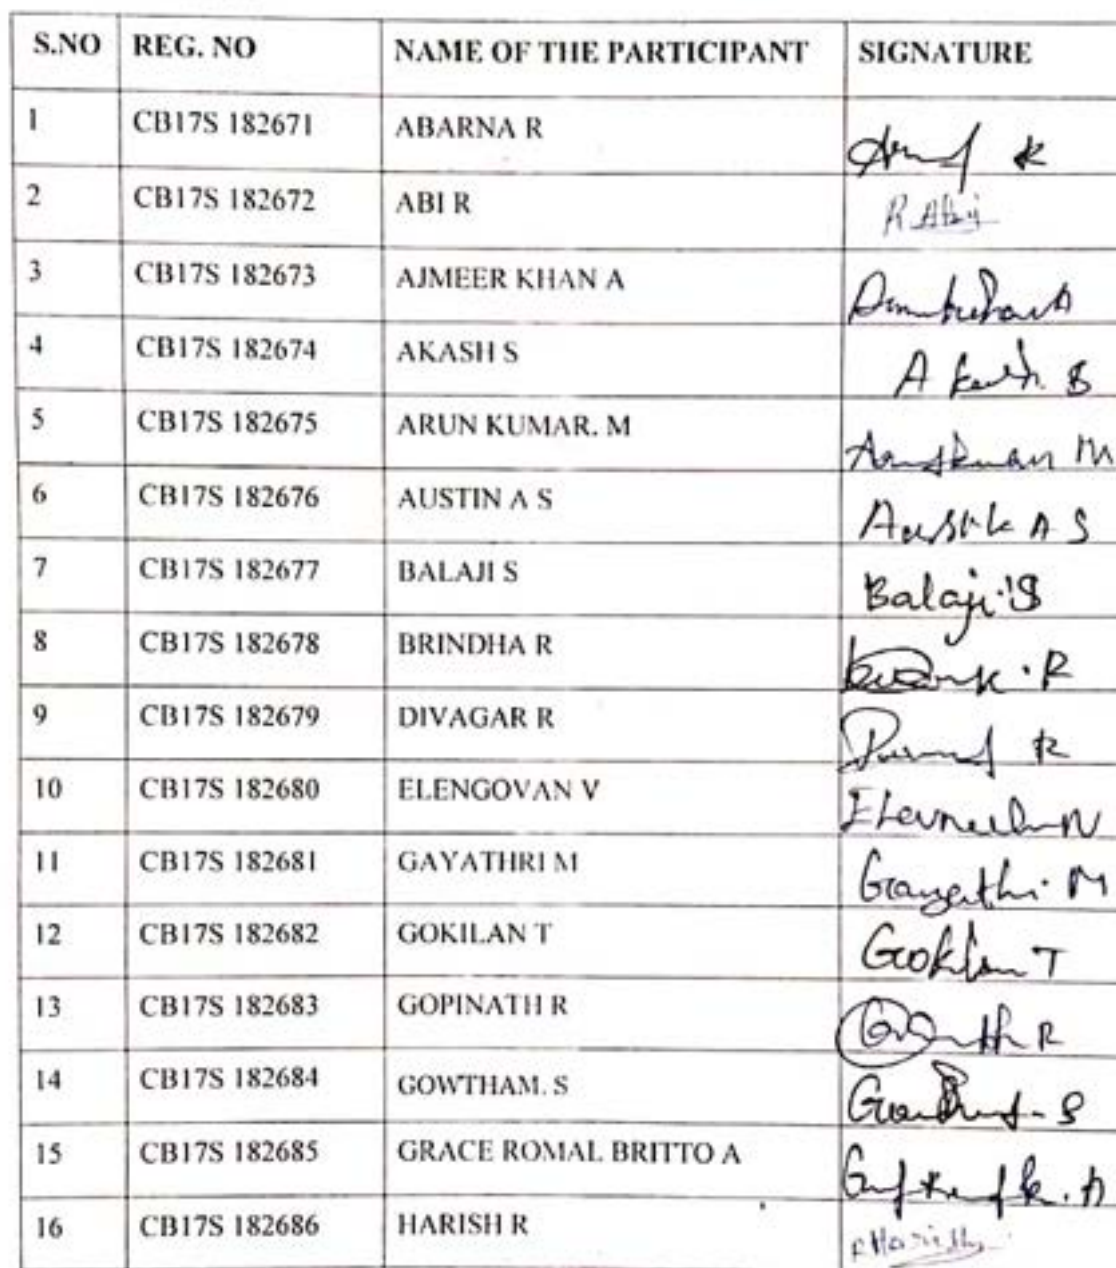 S.NO REG. NO NAME OF THE PARTICIPANT SIGNATURE
1 CB17S 182671 ABARNA R R
2 CB17S 182672 ABI R R Abi
3 CB17S 182673 AJMEER KHAN A
4 CB17S 182674 AKASH S Akash. S
5 CB17S 182675 ARUN KUMAR. M Arunkumar M
6 CB17S 182676 AUSTIN A S A S
7 CB17S 182677 BALAJI S Balaji.S
8 CB17S 182678 BRINDHA R R
9 CB17S 182679 DIVAGAR R R
10 CB17S 182680 ELENGOVAN V
11 CB17S 182681 GAYATHRI M Gayathri. M
12 CB17S 182682 GOKILAN T Gokilan T
13 CB17S 182683 GOPINATH R R
14 CB17S 182684 GOWTHAM. S S
15 CB17S 182685 GRACE ROMAL BRITTO A A
16 CB17S 182686 HARISH R R Harish